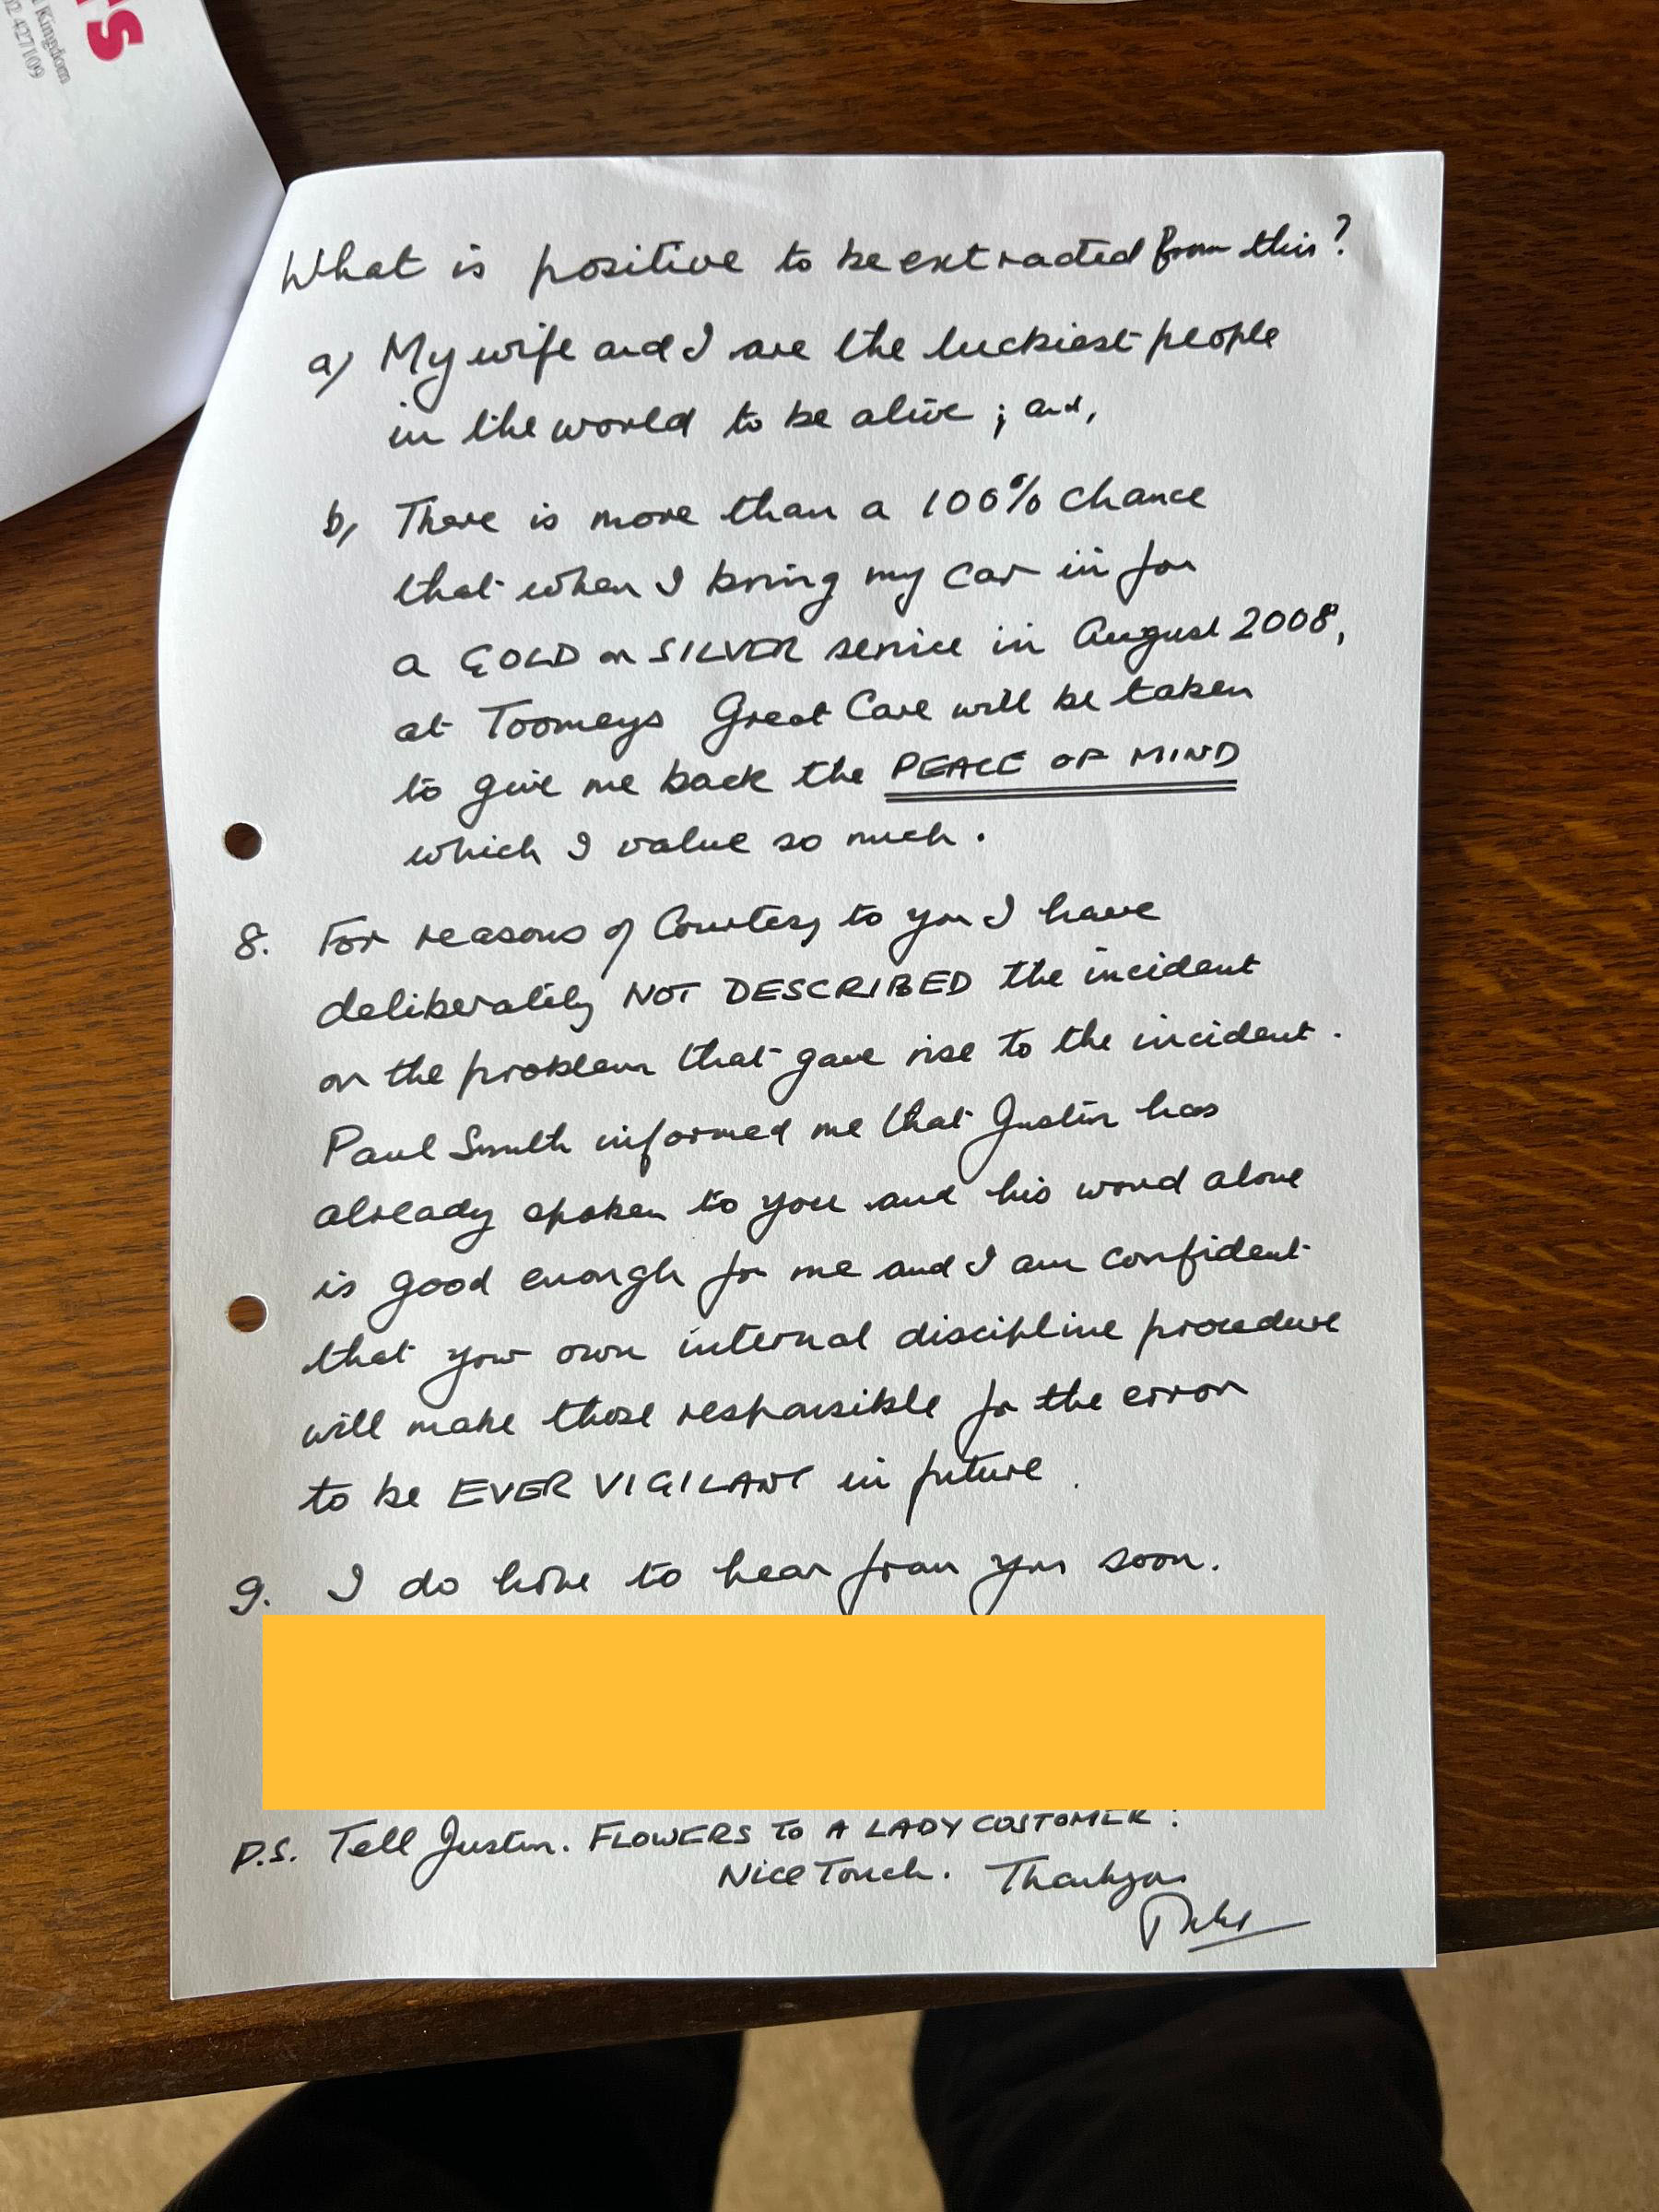 TS
Kingdom
427109
What is positive to be extracted from this?
a) My wife and I are the luckiest people
in the world to be alive ; and,
b, There is more than a 100% chance
that when I bring my car in for
a GOLD or SILVER service in August 2008,
at Toomeys Great Care will be taken
to give me back the PEACE OF MIND
which I value so much .
8. For reasons of Courtesy to you I have
deliberately NOT DESCRIBED the incident
or the problem that gave rise to the incident .
Paul Smith informed me that Justin has
already spoken to you and his word alone
is good enough for me and I am confident
that your own internal discipline procedure
will make those responsible for the error
to be EVER VIGILANT in future .
9. I do hope to hear from you soon.
P.S. Tell Justin. FLOWERS TO A LADY CUSTOMER !
Nice Touch. Thankyou